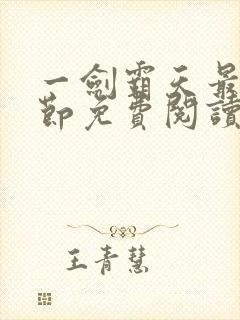 一劍霸天最
節免費閱讀
王青慧